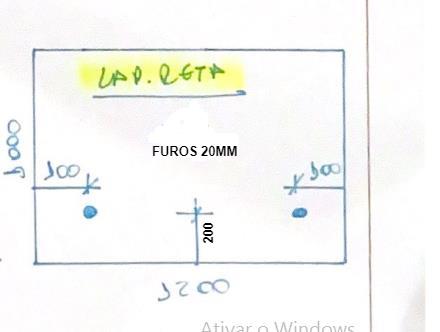 LAP. RETA
FUROS 20MM
1000
100
100
200
1200
Ativar o Windows